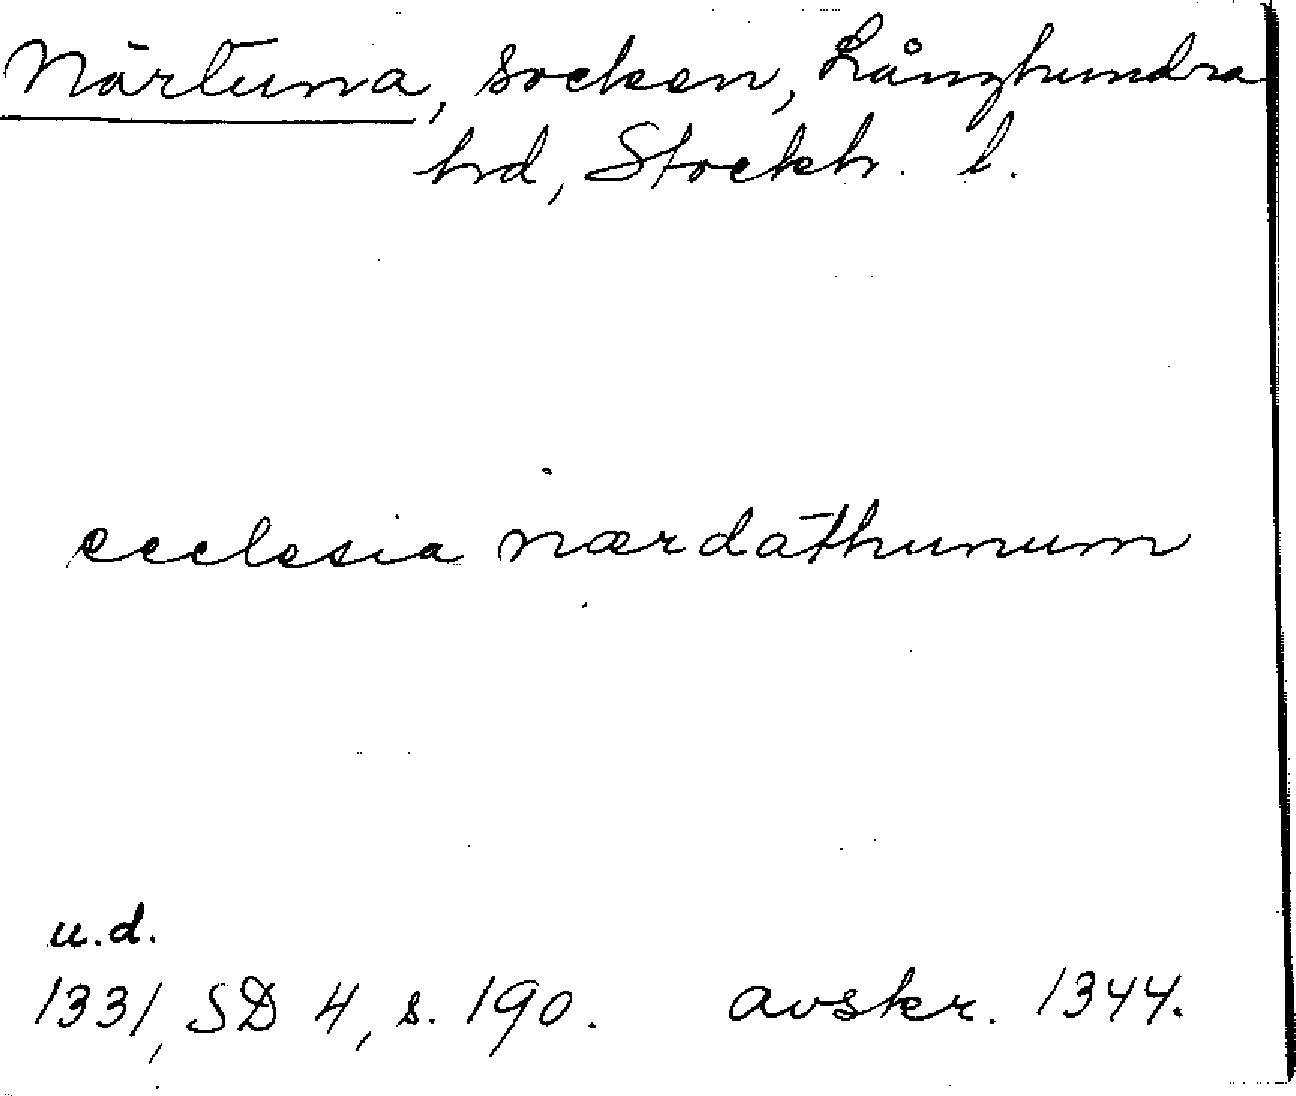 Närtuna, socken, Långhundra
hd, Stockh. l.
ecclesia nærdathunum
u.d.
1331, SD 4, s. 190. avskr. 1344.